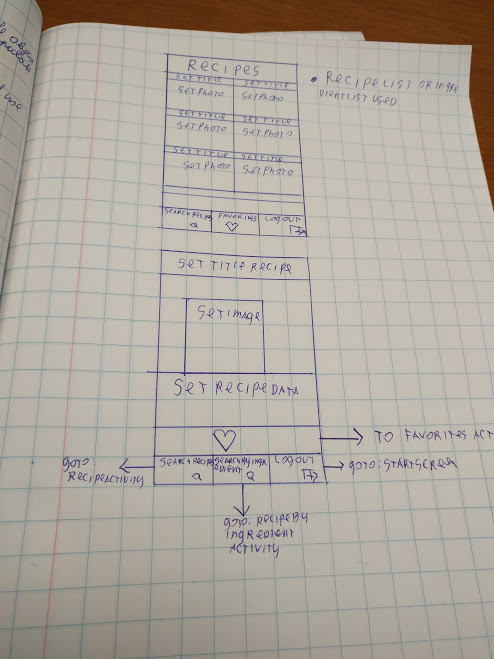 RECIPES
SET TITLE SET TITLE
SET PHOTO SET PHOTO
SET TITLE SET TITLE
SET PHOTO SET PHOTO
SET TITLE SET TITLE
SET PHOTO SET PHOTO
SEARCH RECIPE FAVORITES LOGOUT
• RECIPELIST OR INGRE
DIENTLIST USED
SET TITLE RECIPE
SET IMAGE
SET RECIPE DATA
TO FAVORITES ACT
SEARCH RECIPE SEARCH BY INGR LOGOUT
EDIENT
GOTO
RECIPEACTIVITY
GOTO: STARTSCREEN
GOTO: RECIPE BY
INGREDIENT
ACTIVITY